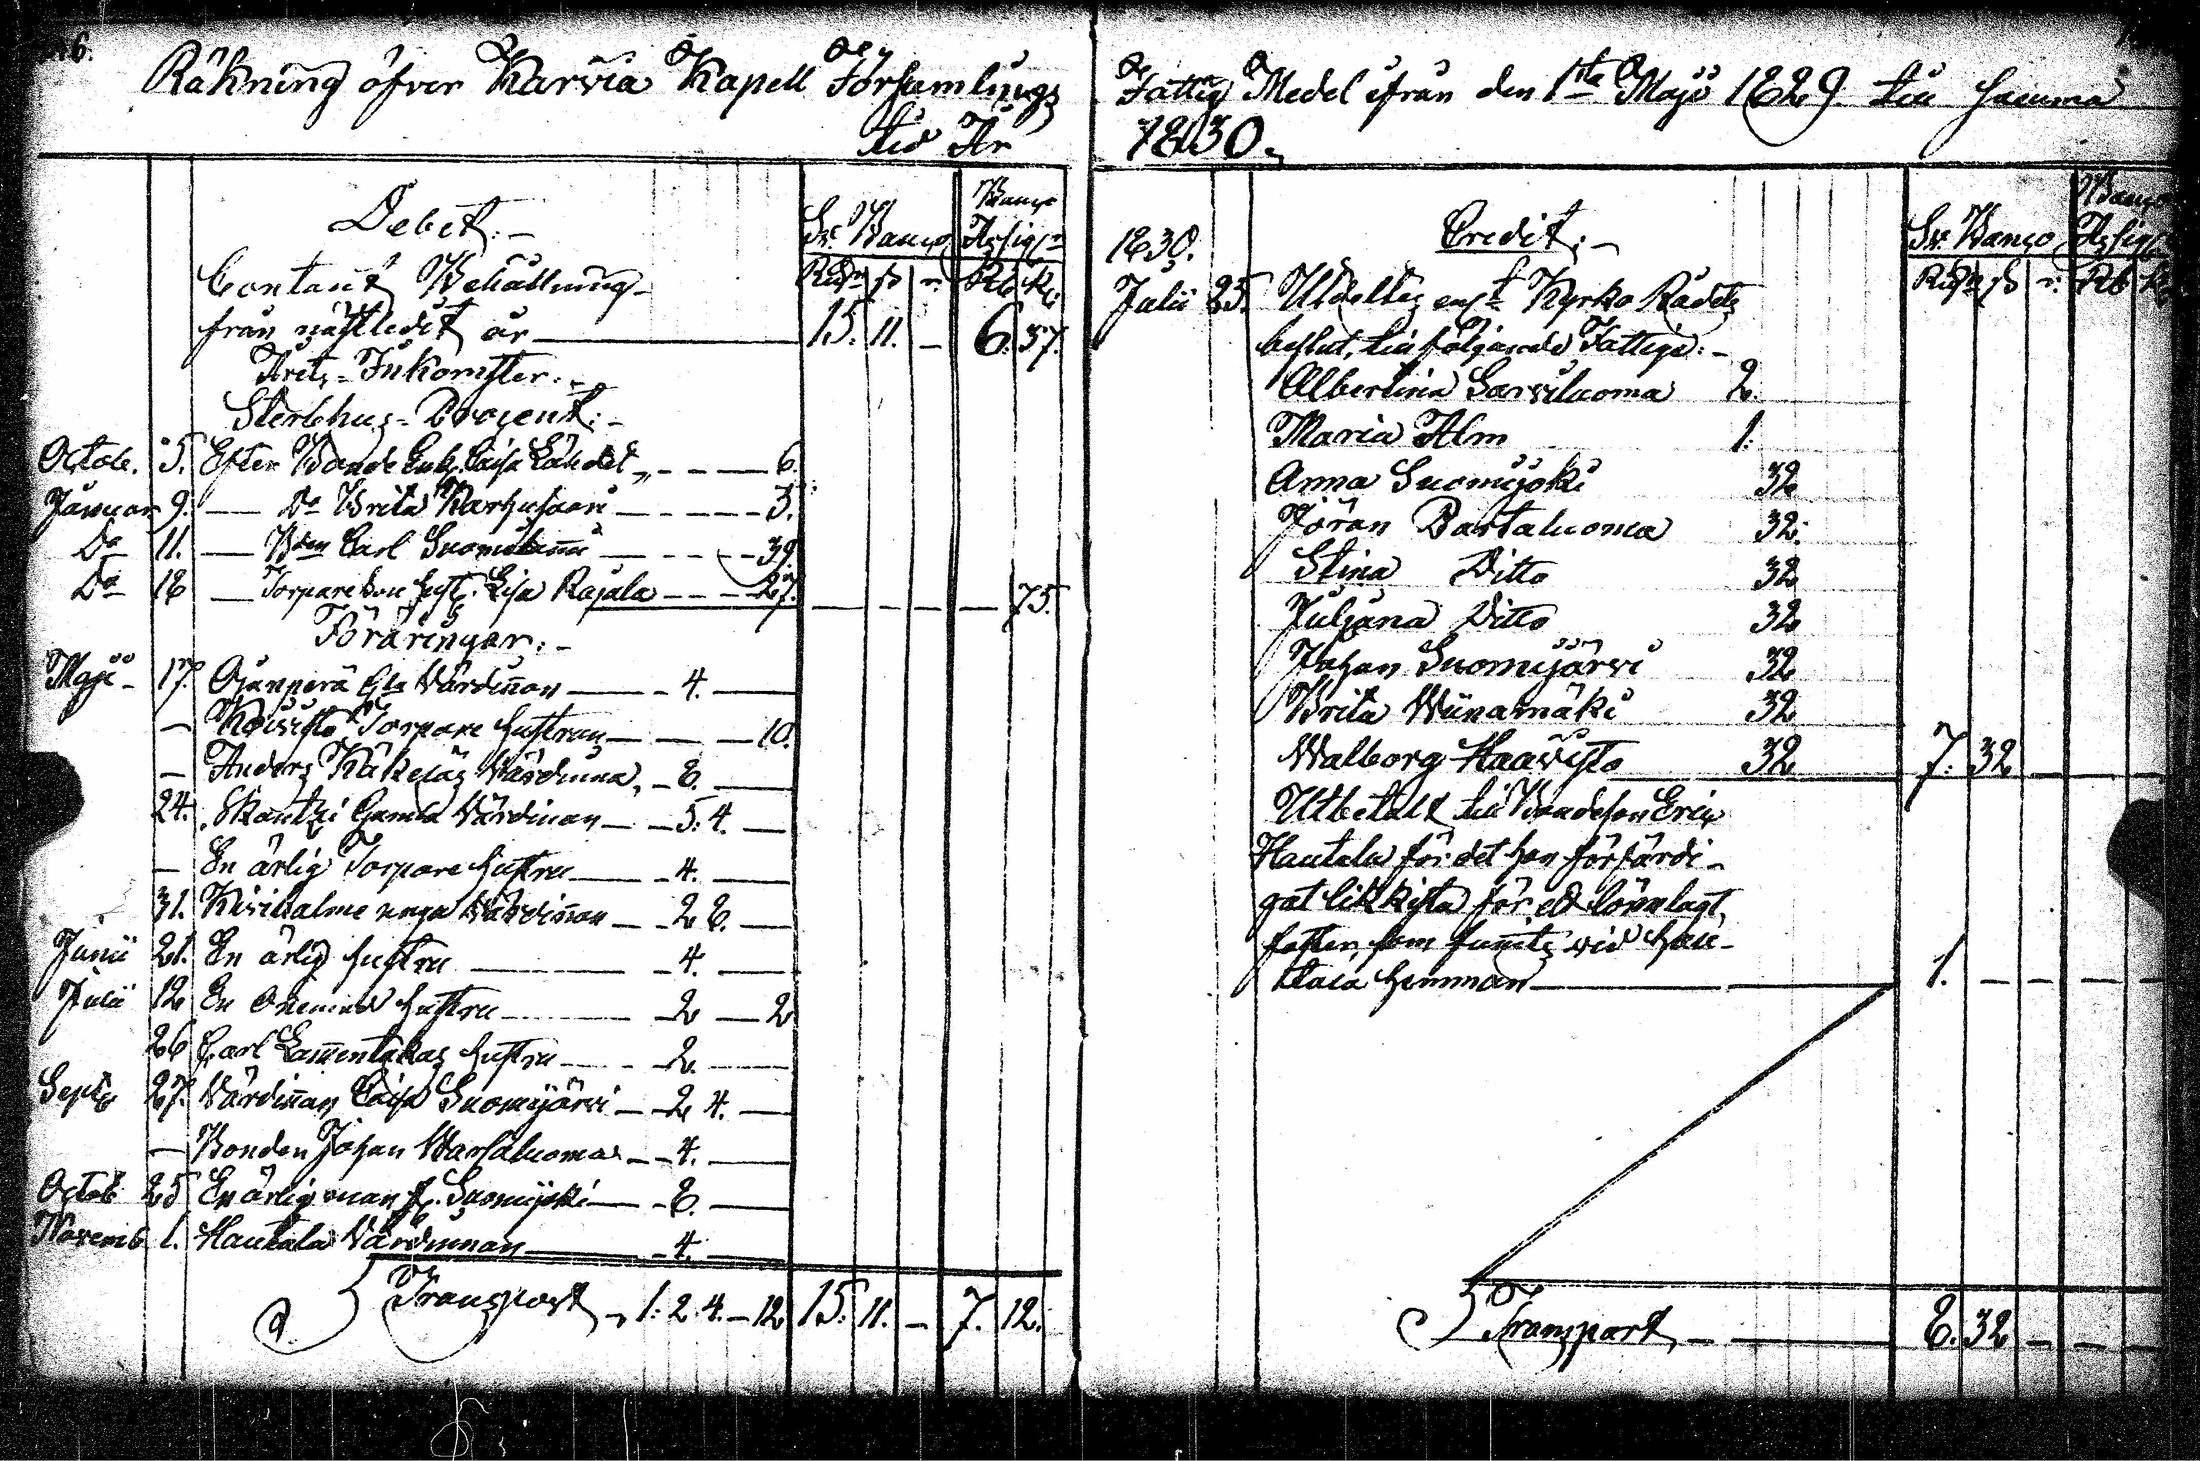 Räkning öfver Karvia Kapell Församlings
tid År
Debet:-
Sv. Banco
Banco Assign
Contant Behållning
Rdr ß r. Rb K:
från nästledit år 15. 11. - 6. 37.
Årets Inkomster:-
Sterbhus-Procent:-
Octob. 5. Efter Bonde Enk. Caisa Lähdet 6.
Januar 9. - Do Brita Karhusaari 3.
Do 11. - Bden Carl Suomi 39.
Do 18 - Torparehust. Lisa Rajala 27. 75.
Föräringar:-
Maji 17. Ojanperä Gla Värdinnan 4.
- Koivisto Torpare hustrun 10.
- Anders Käkeläs Värdinna 8.
24. Skantzi Gamla Värdinnan 5. 4.
- En ärlig Torpare hustru 4.
31. unga Värdinnan 2 8.
Junii 21. En ärlig hustru 4.
Julii 12 En hustru 2 2
26 Carl Lammentakas hustru 2.
Septb 27. Värdinnan Caisa Suomijärvi 2 4.
- Bonden Johan 4.
Octob 25 En ärlig man fr. Suomijoki 8.
Novemb 1. Hautala Värdinnan 4.
Transport 1. 2. 4. - 12 15. 11. - 7. 12.
Fattig Medel ifrån den 1sta Maji 1829 till samma
1830.
Credit:-
Sv. Banco
Banco Assign
1830.
Rdr ß r. Rb K
Julii 25. Utdeltes enl. Kyrko Rådets
beslut, till följande Fattige:-
Albertina Sarviluoma 2.
Maria Alm 1.
Anna Suomijoki 32
Jöran Rastaluoma 32.
Stina Ditto 32
Juljana Ditto 32
Johan Suomijärvi 32
Brita Wiinamäki 32
Walborg Haavisto 32 7. 32
Utbetalt till Bondeson Eric
Hautala för det han förfärdi-
gat likkista för ett lönnlagt
foster, som funnits vid Hau-
tala hemman 1. - - -
Transport 8. 32 - -